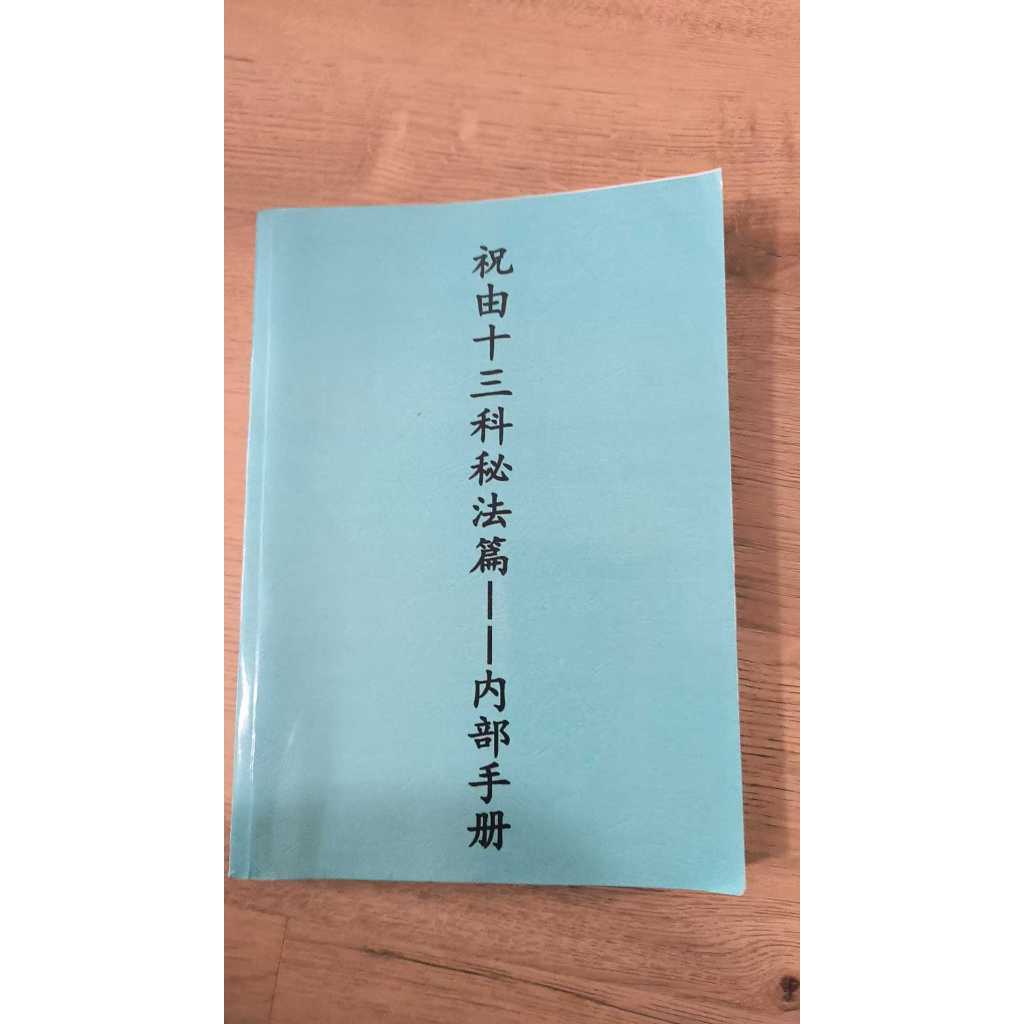 祝由十三科秘法篇——内部手册